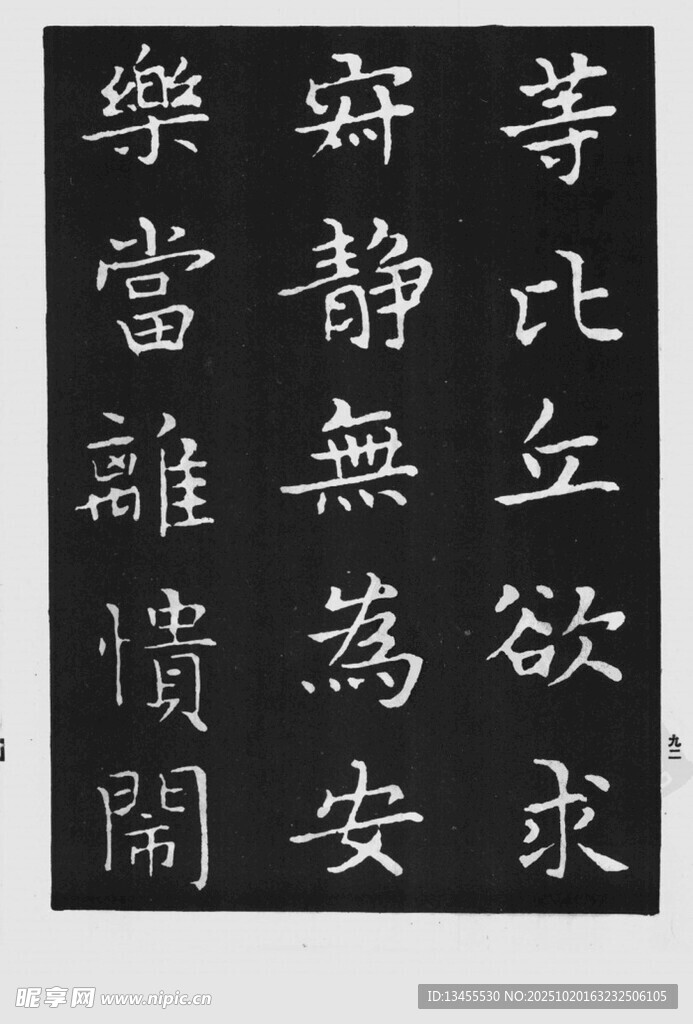 等比丘欲求
寂静無為安
樂當離憒閙
九二
昵享网 www.nipic.cn
ID:13455530 NO:20251020163232506105